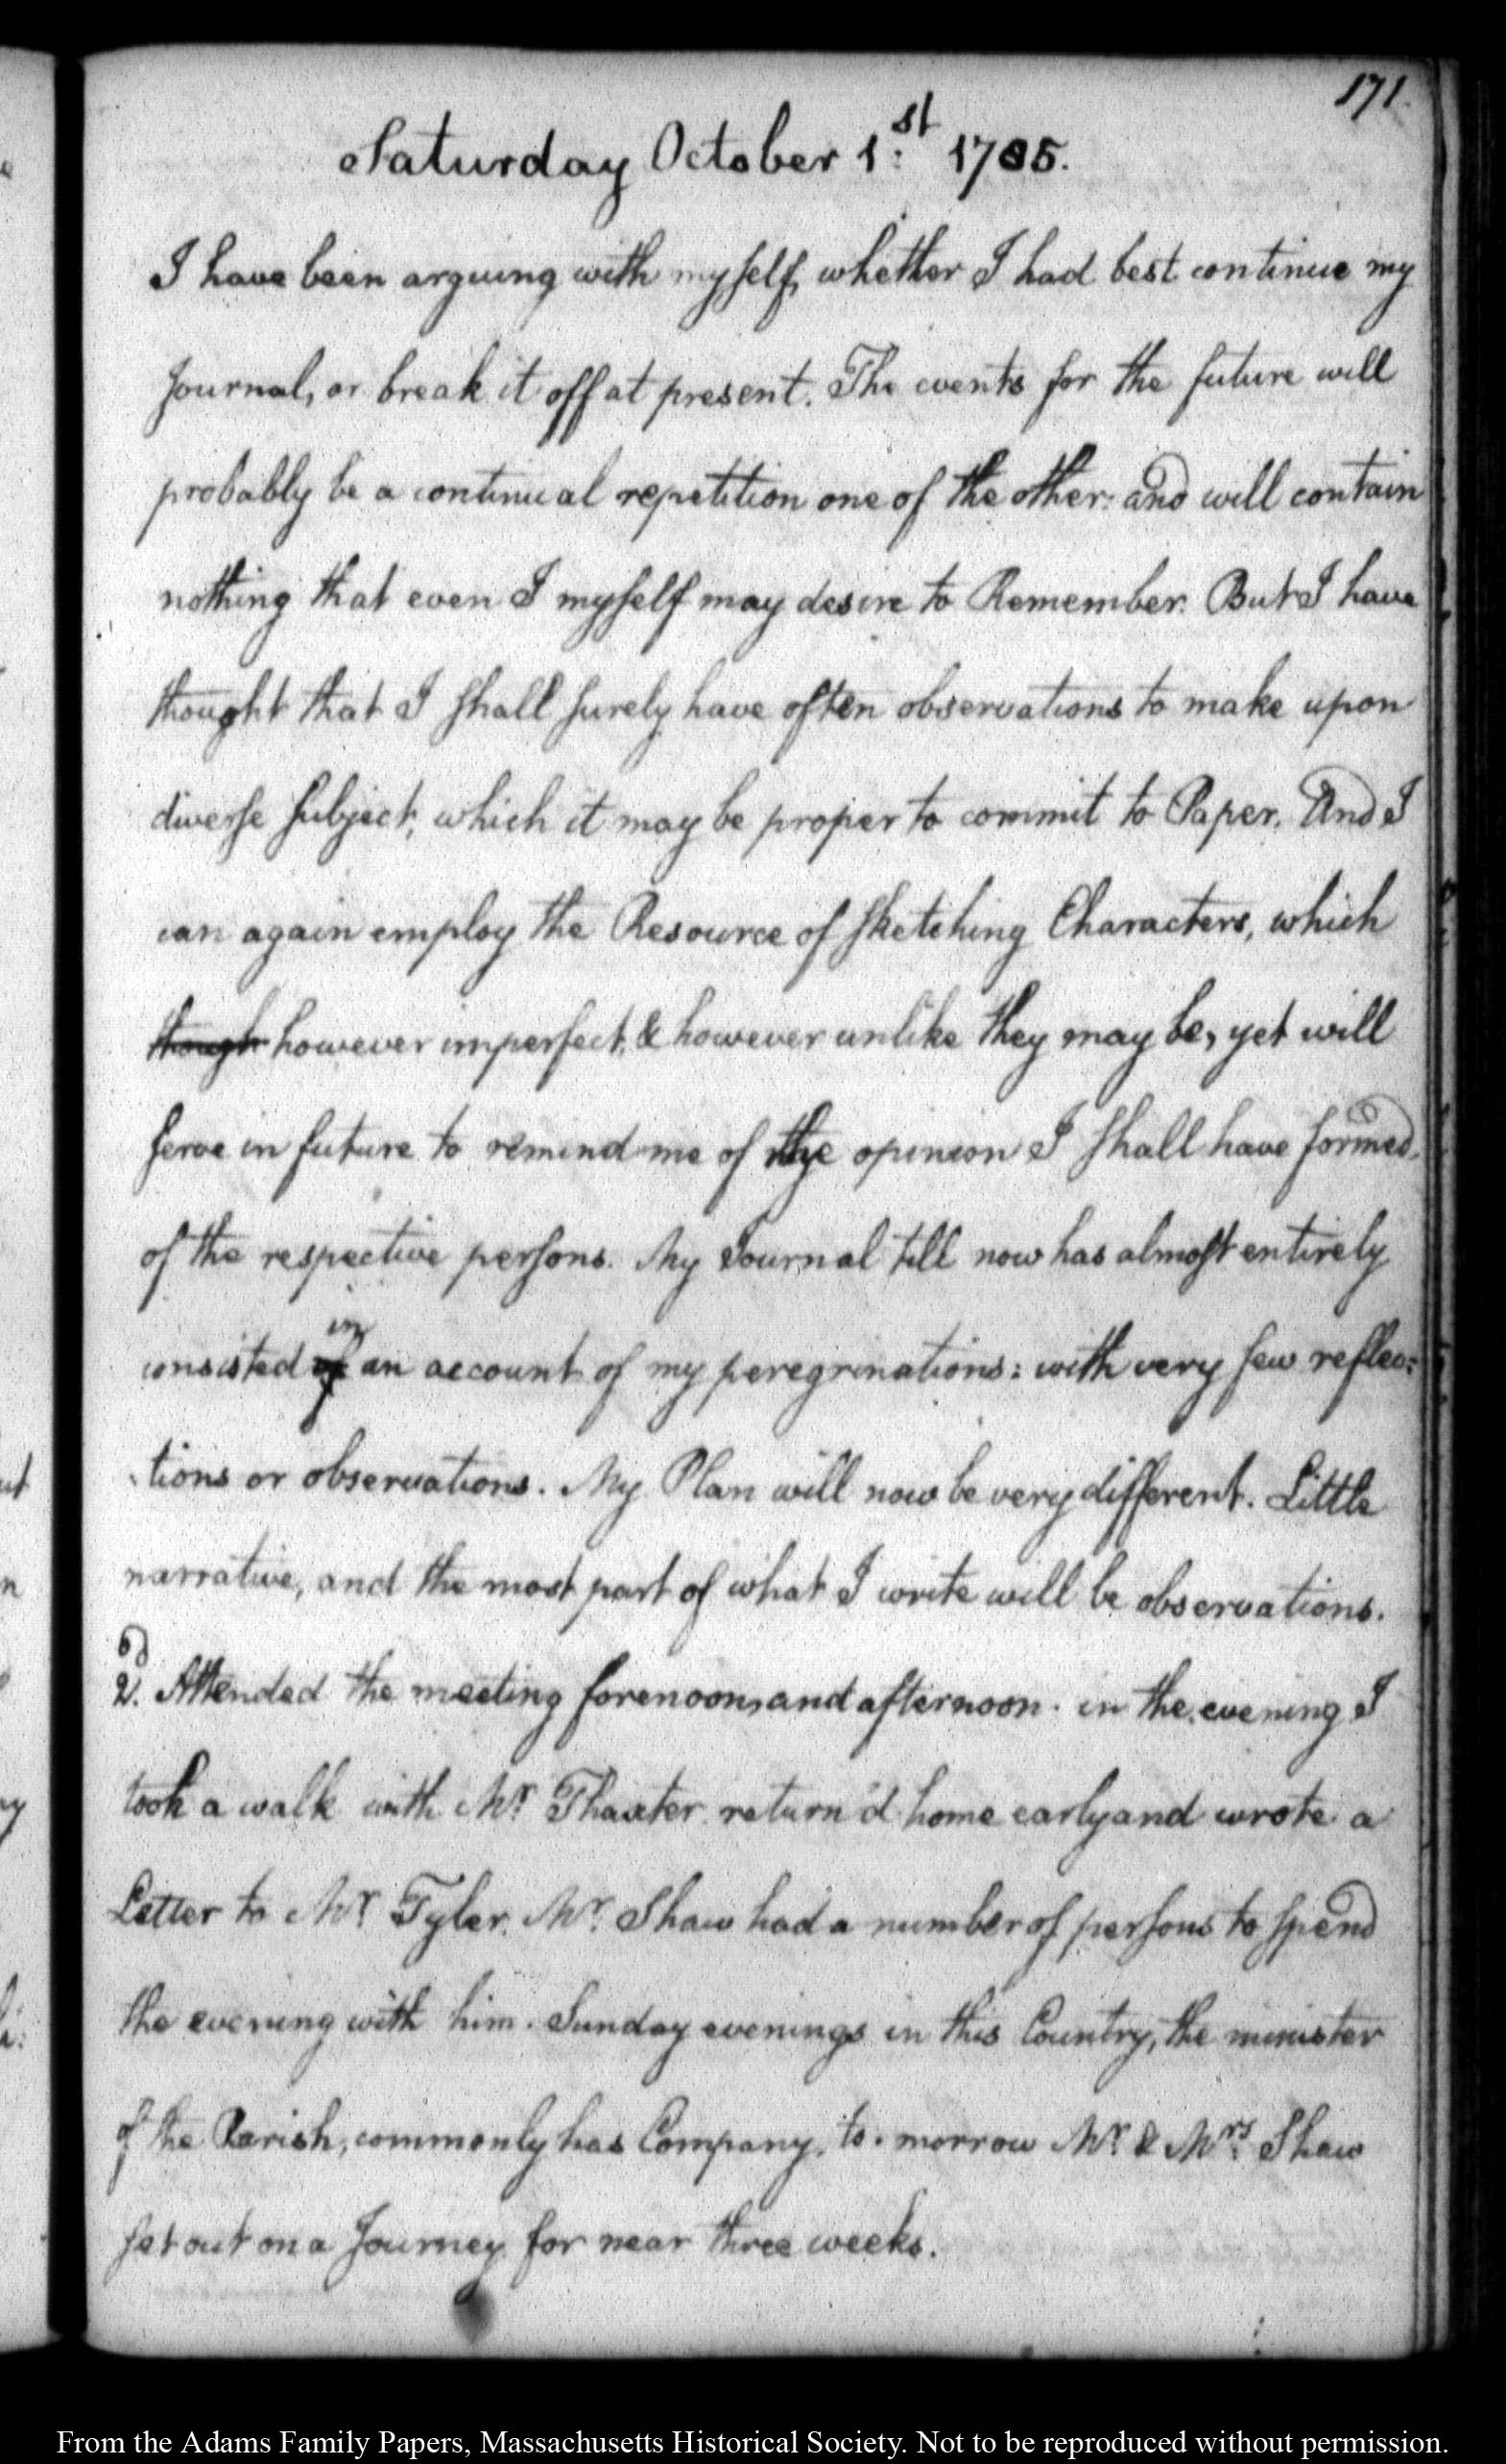 171.
Saturday October 1.st 1785.
I have been arguing with myself, whether I had best continue my
Journal, or break it off at present. The events for the future will
probably be a continual repetition one of the other: and will contain
nothing that even I myself may desire to Remember. But I have
thought that I shall surely have often observations to make upon
diverse subject, which it may be proper to commit to Paper. And I
can again employ the Resource of sketching Characters, which
though however imperfect, & however unlike they may be, yet will
serve in future to remind me of the opinion I shall have formed,
of the respective persons. My Journal till now has almost entirely
in
consisted of an account of my peregrinations: with very few reflec:
tions or observations. My Plan will now be very different. Little
narrative, and the most part of what I write will be observations.
2.d Attended the meeting forenoon, and afternoon. in the evening I
took a walk with Mr. Thaxter. return'd home early and wrote a
Letter to Mr. Tyler. Mr. Shaw had a number of persons to spend
the evening with him. Sunday evenings in this Country, the minister
of the Parish, commonly has Company. to-morrow Mr. & Mrs. Shaw
set out on a Journey for near three weeks.
From the Adams Family Papers, Massachusetts Historical Society. Not to be reproduced without permission.